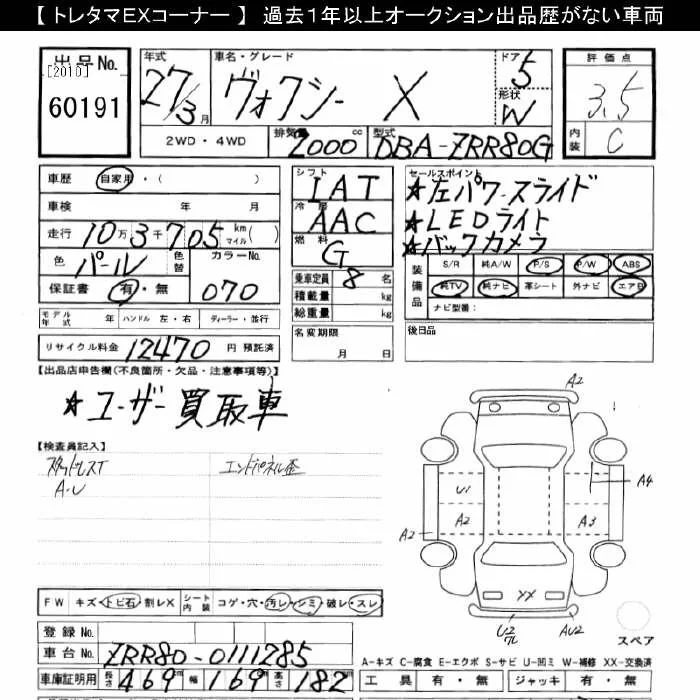 【トレタマEXコーナー】 過去1年以上オークション出品歴がない車両
出品No. [2010] 60191
年式 27/3月 車名・グレード ヴォクシー X ドア 5 形状 W
評価点 3.5 内装 C
2WD・4WD 排気量 2000cc 型式 DBA-ZRR80G
車歴 自家用・( )
車検 年 月
走行 10万3千705 km マイル ( )
色 パール 色替 カラーNo. 070
保証書 有・無
シフト IAT
冷房 AAC
燃料 G
乗車定員 8名
積載量 kg
総重量 kg
名変期限 月 日
セールスポイント
★左パワースライド
★LEDライト
★バックカメラ
装備品 S/R 純A/W P/S P/W ABS
純TV 純ナビ 革シート 外ナビ エアB
ナビ型番:
後日品
モデル年式 年 ハンドル 左・右 ディーラー・並行
リサイクル料金 12470 円 預託済
【出品店申告欄(不良箇所・欠品・注意事項等)】
★ユーザー買取車
【検査員記入】
スタッドレスT エンドパネル歪
A・U
A2
U1 A4
A2 A2 A3
XX
U2 AU2
スペア
FW キズ・トビ石・割レX シート内装 コゲ・穴・汚レ・シミ・破レ・スレ
登録No.
車台No. ZRR80-0111285
車庫証明用 長さ 469cm 幅 169cm 高さ 182cm
A-キズ C-腐食 E-エクボ S-サビ U-凹ミ W-補修 XX-交換済
工具 有・無 ジャッキ 有・無